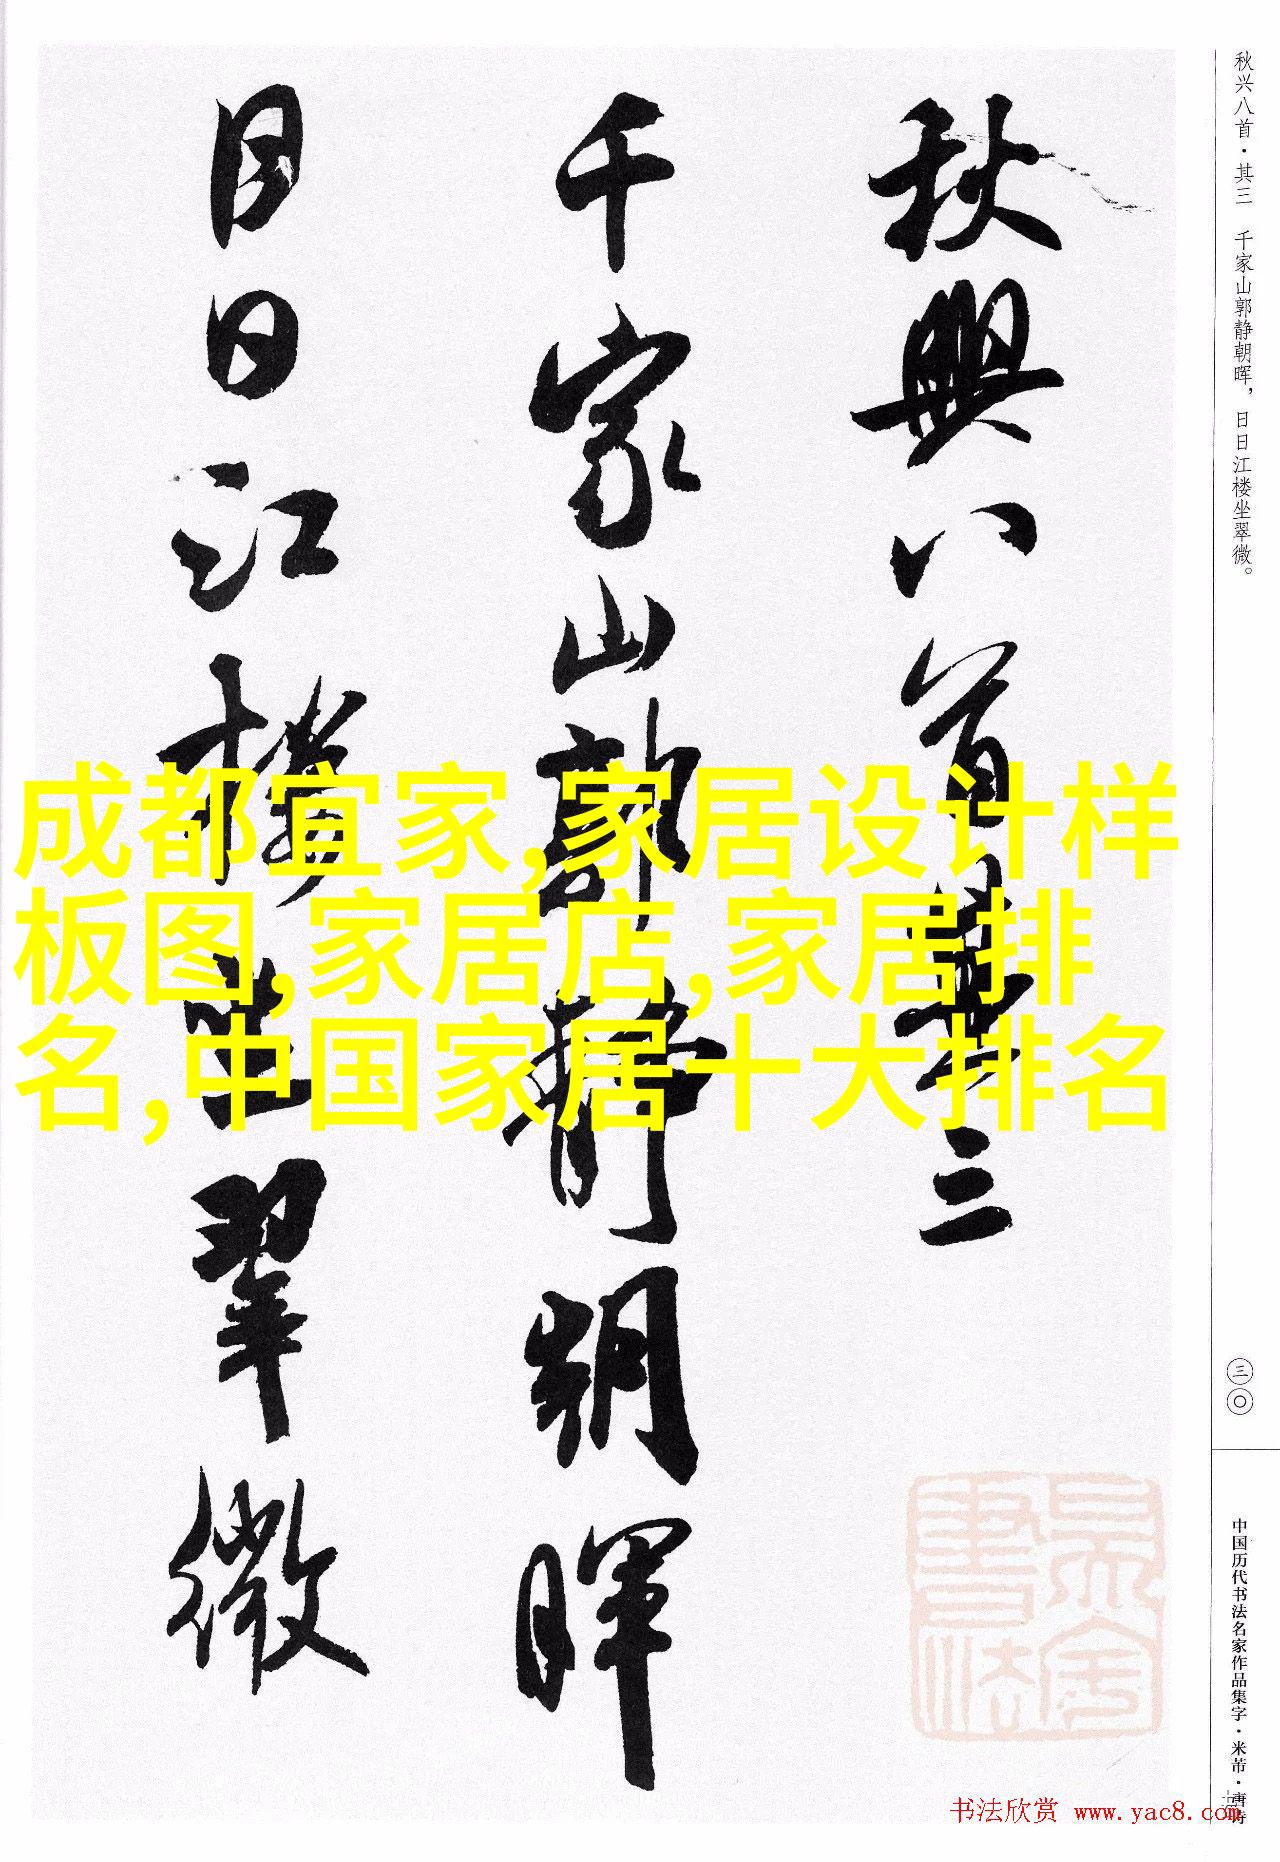 秋兴八首·其三 千家山郭静朝晖，日日江楼坐翠微。
三〇
中国历代书法名家作品集字·米芾·唐诗
秋興八首其三
千家山郭静朝暉
日日江樓坐翠微
成都宜家,家居设计样
板图,家居店,家居排
名,中国家居十大排名
书法欣赏 www.yac8.com